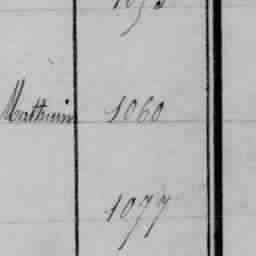 Mathurin 1060
1077